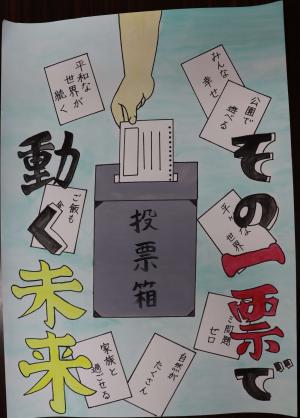 その一票で
動く未来
投票箱
みんな
幸せ
公園で
遊べる
平和な
世界が
続く
ご飯も
世界
問題
ゼロ
自然が
たくさん
家族と
過ごせる